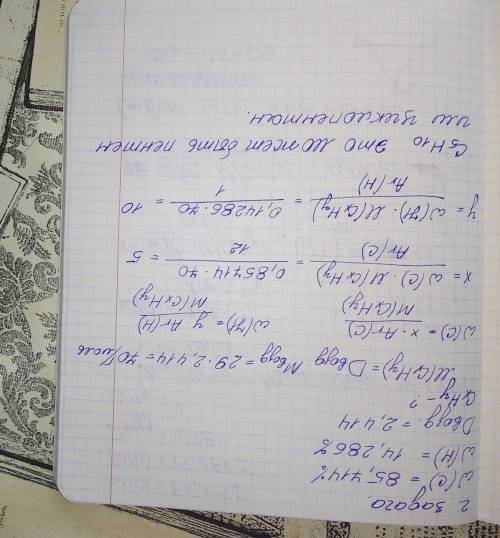 2 задача.
ω(C) = 85,714%
ω(H) = 14,286%
Dвозд. = 2,414
CxHy - ?
M(CxHy) = Dвозд. Mвозд = 29 · 2,414 = 70 г/моль
ω(C) = x · Ar(C) / M(CxHy) ω(H) = y · Ar(H) / M(CxHy)
x = ω(C) · M(CxHy) / Ar(C) = 0,85714 · 70 / 12 = 5
y = ω(H) · M(CxHy) / Ar(H) = 0,14286 · 70 / 1 = 10
C5H10 это может быть пентен
или циклопентан.